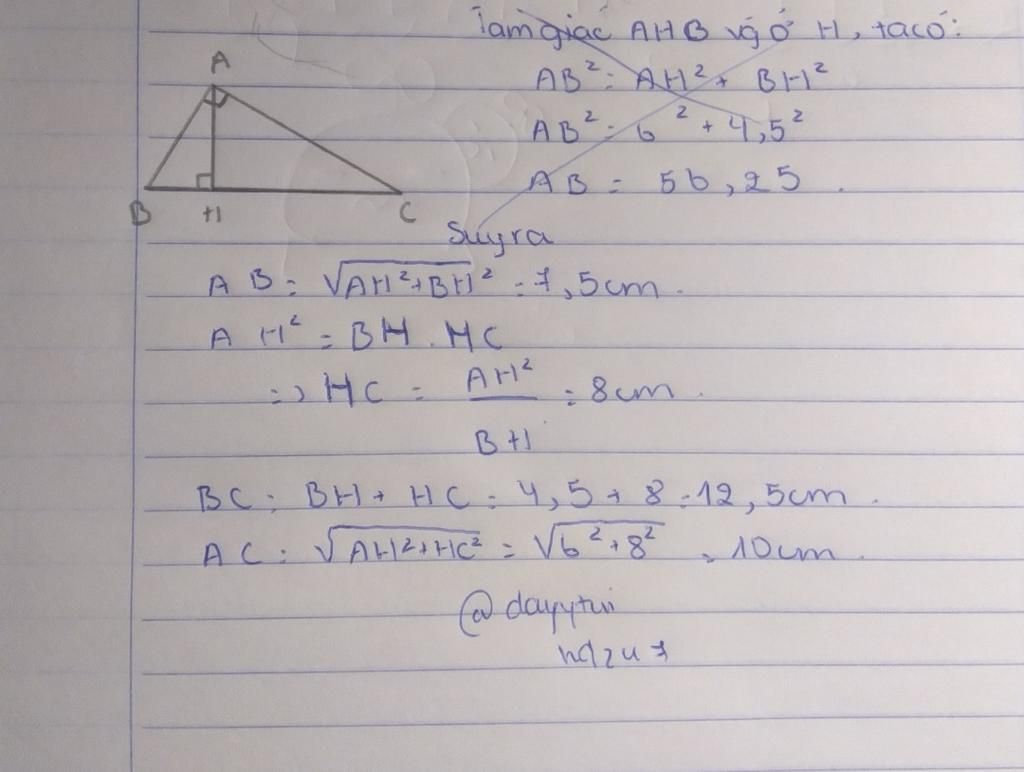 Tam giác AHB vg ở H, ta có:
AB² = AH² + BH²
AB² = 6² + 4,5²
AB = 56,25.
Suy ra
A
B H C
AB = √AH²+BH² = 7,5cm.
AH² = BH . HC
=> HC = AH²/BH = 8cm.
BC = BH + HC = 4,5 + 8 = 12,5cm.
AC = √AH²+HC² = √6²+8² = 10cm.
@dayytui